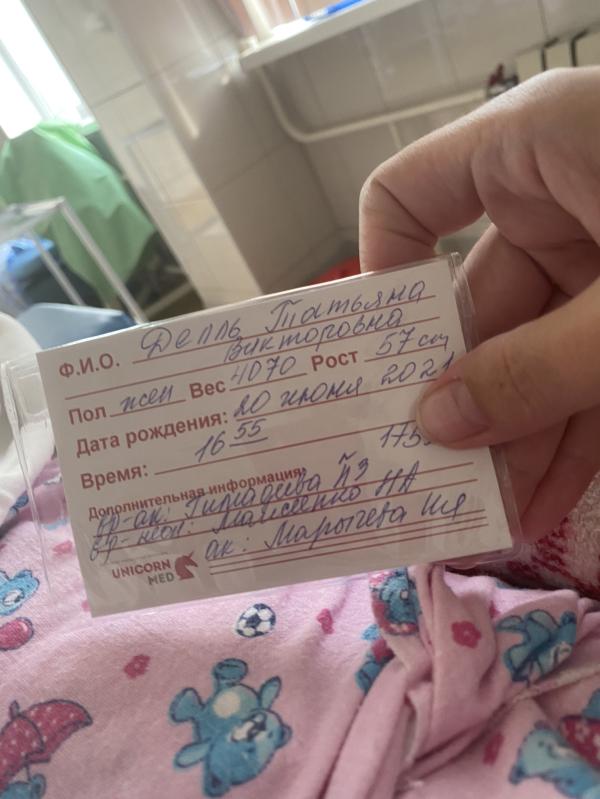 Ф.И.О. Делль Татьяна
Викторовна
Пол жен Вес 4070 Рост 57 см
Дата рождения: 20 июня 2021
Время: 16 55
Дополнительная информация:
вр-ак:
вр-неон: Моисеенко НА
ак: Марычева
UNICORN
MED